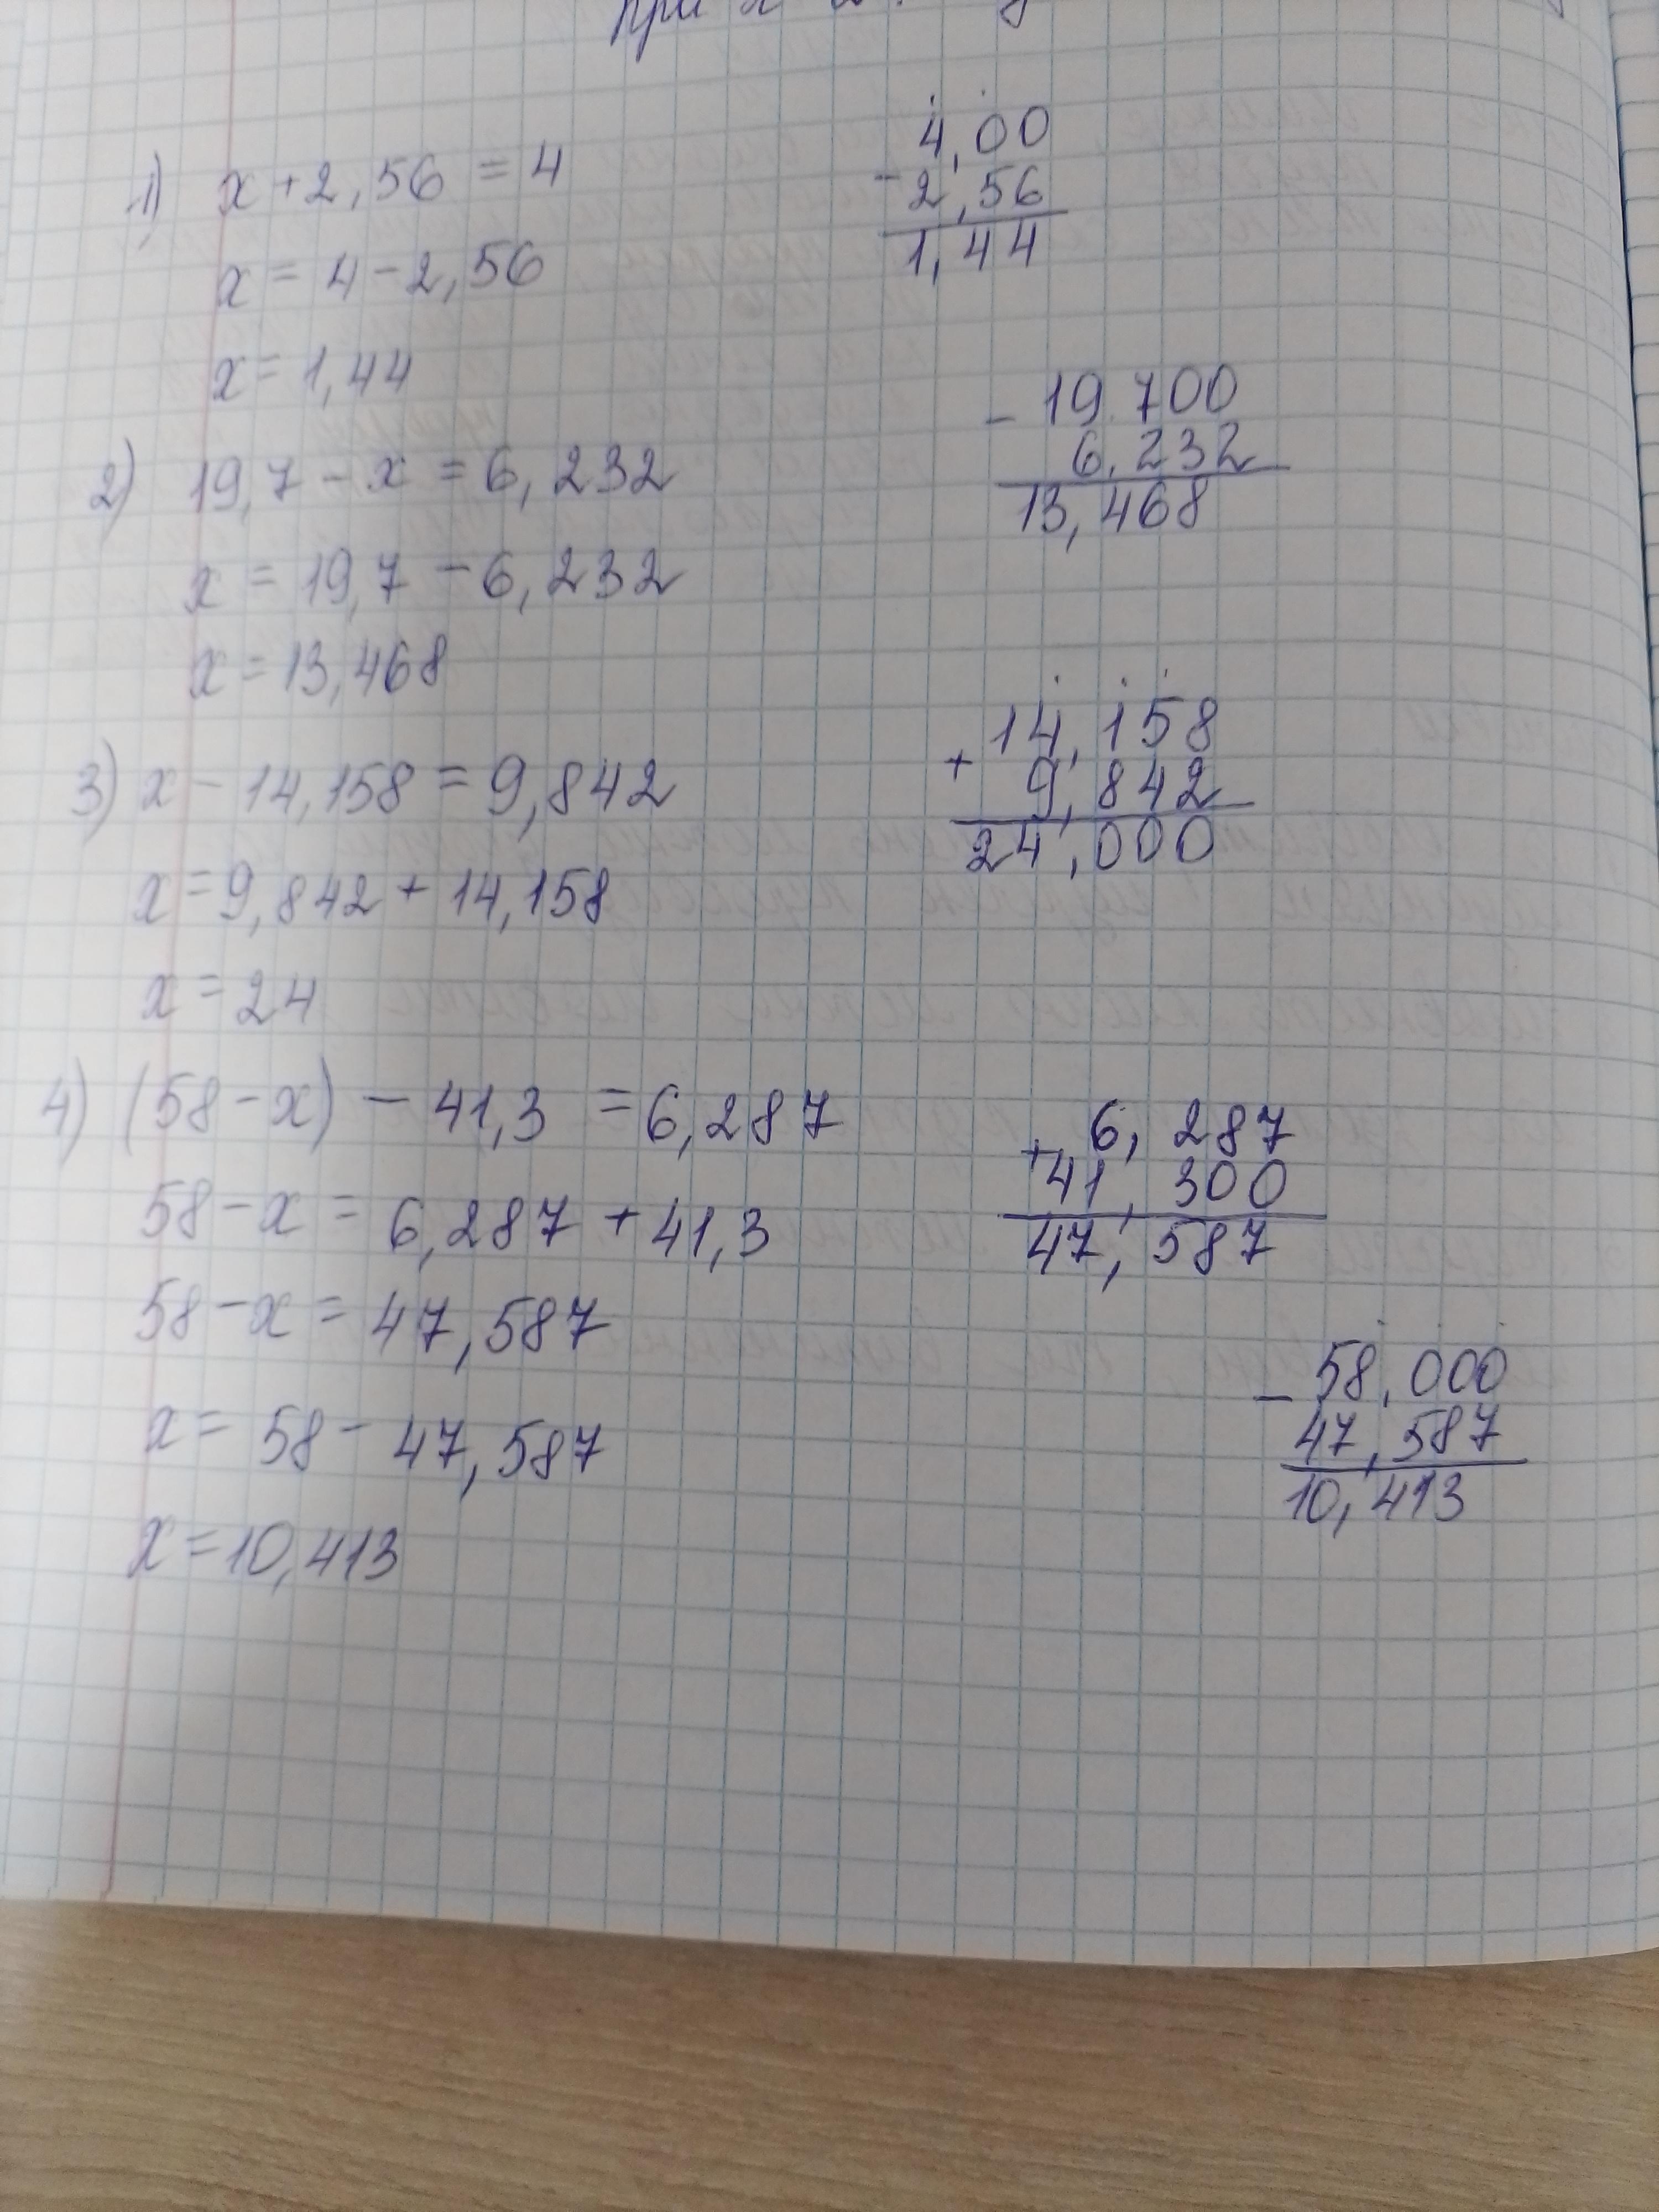 при x
1) x + 2,56 = 4
x = 4 - 2,56
x = 1,44
4,00
- 2,56
1,44
2) 19,7 - x = 6,232
x = 19,7 - 6,232
x = 13,468
- 19.700
6,232
13,468
3) x - 14,158 = 9,842
x = 9,842 + 14,158
x = 24
+ 14,158
9,842
24,000
4) (58 - x) - 41,3 = 6,287
58 - x = 6,287 + 41,3
58 - x = 47,587
x = 58 - 47,587
x = 10,413
+ 6,287
41,300
47,587
- 58,000
47,587
10,413